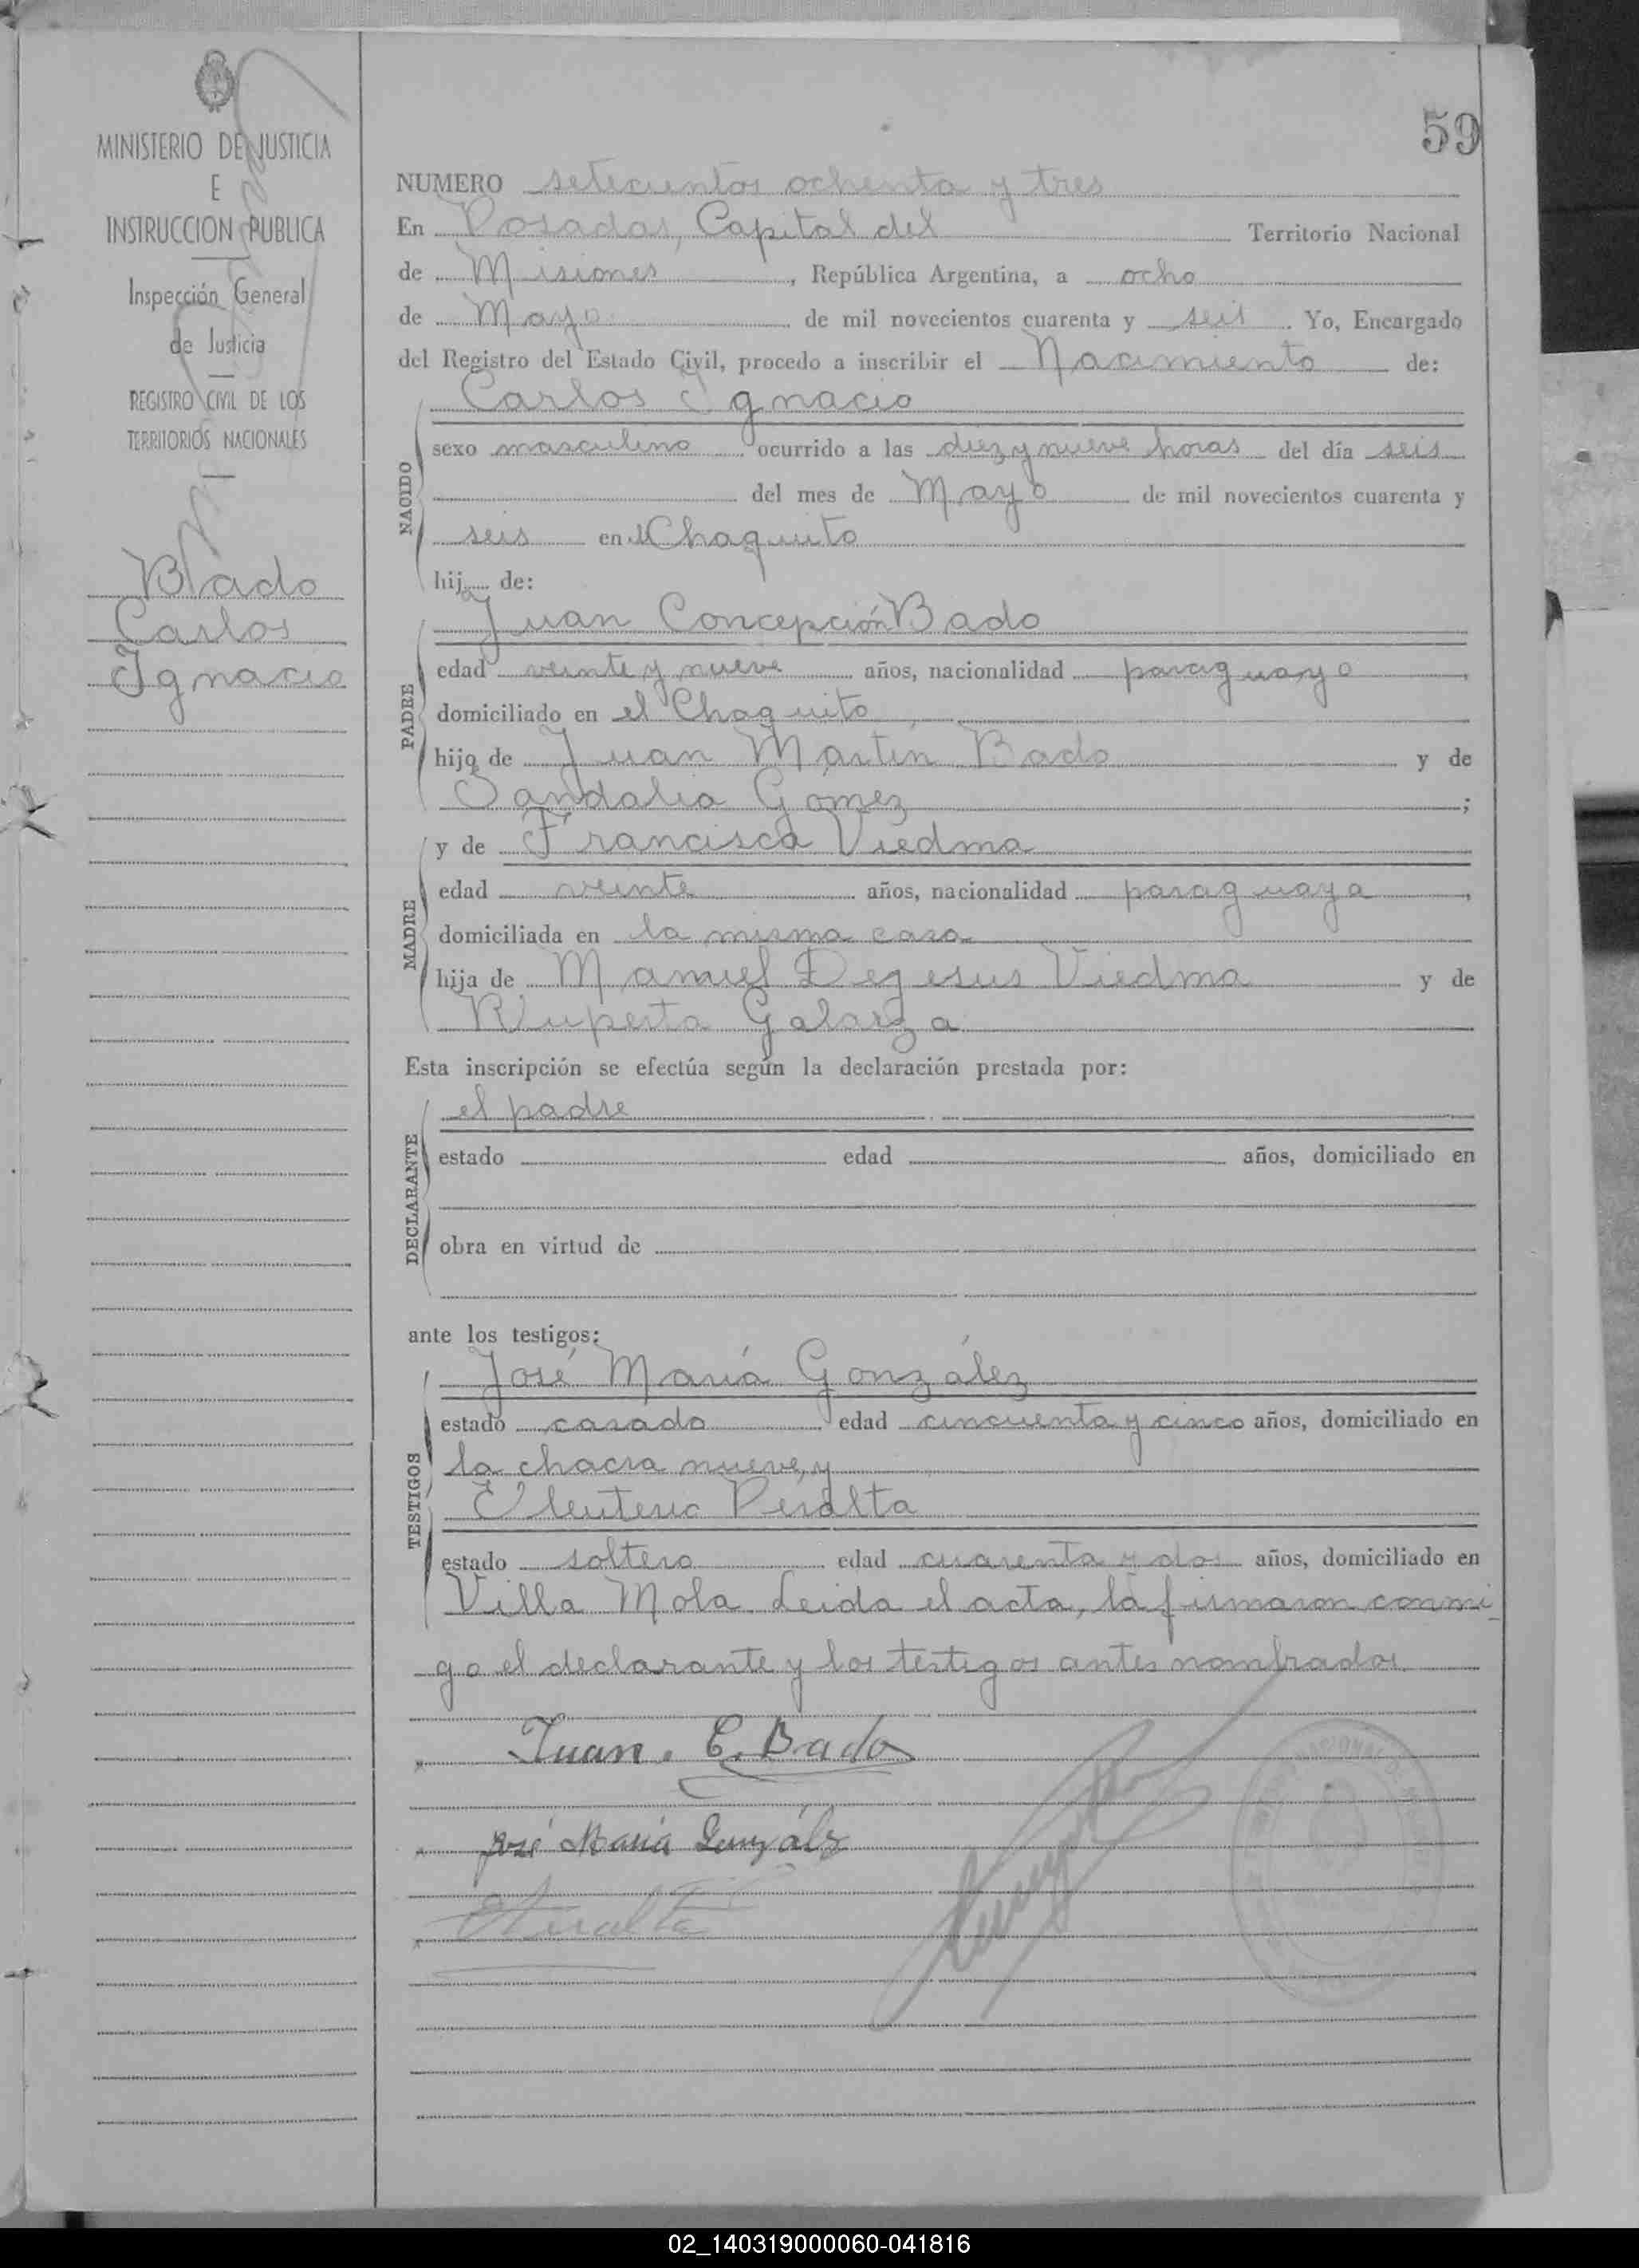 MINISTERIO DE JUSTICIA
E
INSTRUCCION PUBLICA
Inspección General
de Justicia
REGISTRO CIVIL DE LOS
TERRITORIOS NACIONALES
Bado
Carlos
Ignacio
59
NUMERO setecientos ochenta y tres
En Posadas, Capital del Territorio Nacional
de Misiones, República Argentina, a ocho
de Mayo de mil novecientos cuarenta y seis. Yo, Encargado
del Registro del Estado Civil, procedo a inscribir el Nacimiento de:
Carlos Ignacio
NACIDO
sexo masculino ocurrido a las diez y nueve horas del día seis
del mes de Mayo de mil novecientos cuarenta y
seis en el Chaquito
hijo de:
Juan Concepción Bado
PADRE
edad veinte y nueve años, nacionalidad paraguayo,
domiciliado en el Chaquito
hijo de Juan Martín Bado y de
Sandalia Gomez;
y de Francisca Viedma
MADRE
edad veinte años, nacionalidad paraguaya,
domiciliada en la misma casa
hija de Manuel Dejesus Viedma y de
Ruperta Galarza
Esta inscripción se efectúa según la declaración prestada por:
el padre
DECLARANTE
estado edad años, domiciliado en
obra en virtud de
ante los testigos:
José María González
TESTIGOS
estado casado edad cincuenta y cinco años, domiciliado en
la chacra nueve, y
Eleuterio Peralta
estado soltero edad cuarenta y dos años, domiciliado en
Villa Mola. Leida el acta, la firmaron conmi
go el declarante y los testigos antes nombrados
Juan. C. Bado
José María Gonzáls
EPeralta
NACIONAL DE
02_140319000060-041816